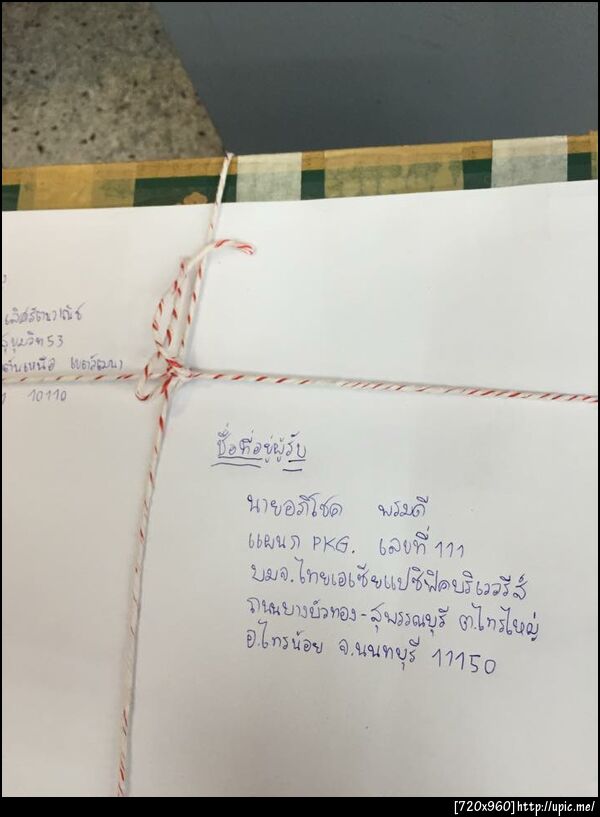 สุขุมวิท 53
10110
ชื่อที่อยู่ผู้รับ
นายอภิโชค พรมดี
แผนก PKG. เลขที่ 111
บมจ.ไทยเอเชียแปซิฟิคบริเวอรีส์
ถนนบางบัวทอง-สุพรรณบุรี ต.ไทรใหญ่
อ.ไทรน้อย จ.นนทบุรี 11150
[720x960]http://upic.me/